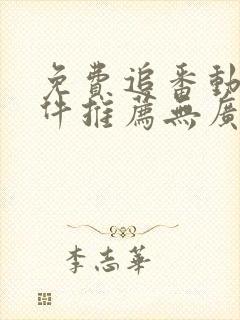 免費追番動
件推薦無廣
李志華